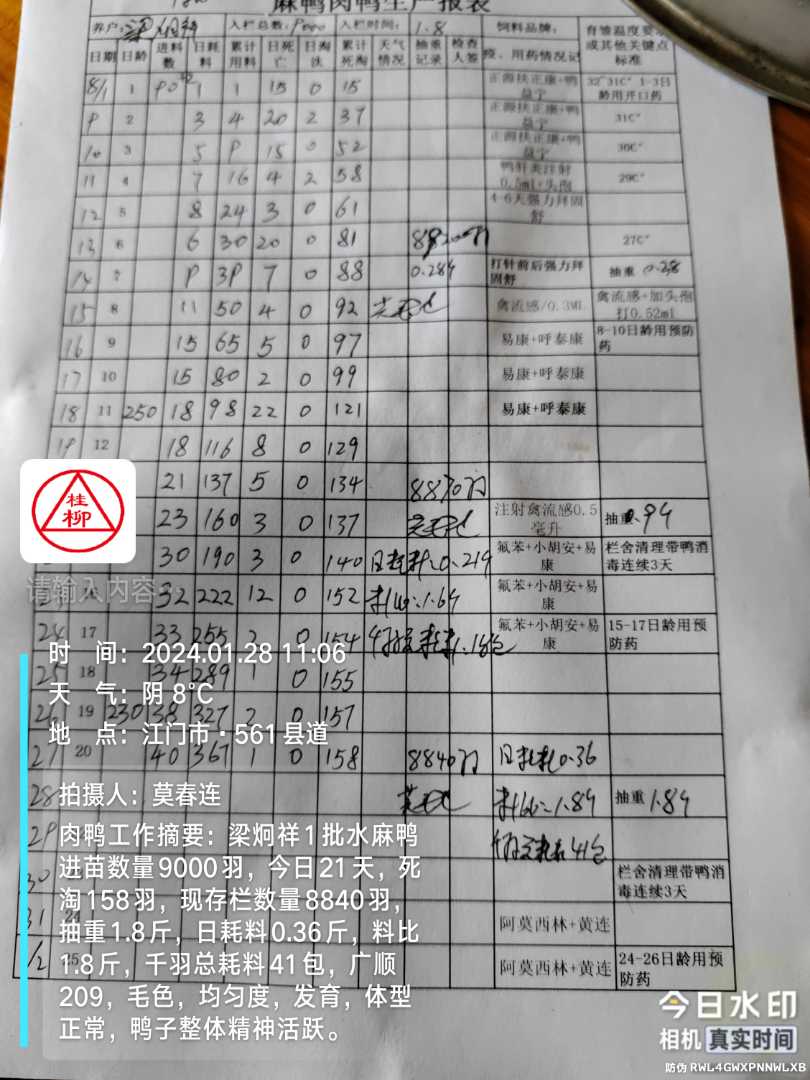 麻鸭肉鸭生产报表
养户: 入栏总数: 9000 入栏时间: 1.8 饲料品牌: 育雏温度要求或其他关键点标准
日期 日龄 进料数 日耗料 累计用料 日死亡 日淘汰 累计死淘 天气情况 抽重记录 检查人签 疫、用药情况记
8/1 1 90 1 1 15 0 15 正源扶正康+鸭益宁 32~31C° 1-3日龄用开口药
9 2 3 4 20 2 37 正源扶正康+鸭益宁 31C°
10 3 5 9 15 0 52 正源扶正康+鸭益宁 30C°
11 4 7 16 4 2 58 鸭肝炎注射0.5ml+头孢 29C°
12 5 8 24 3 0 61 4-6天强力拜固舒
13 6 6 30 20 0 81 27C°
14 7 9 39 7 0 88 0.284 打针前后强力拜固舒 抽重 0.28
15 8 11 50 4 0 92 禽流感/0.3ML 禽流感+加头孢打0.52ml
16 9 15 65 5 0 97 易康+呼泰康 8-10日龄用预防药
17 10 15 80 2 0 99 易康+呼泰康
18 11 250 18 98 22 0 121 易康+呼泰康
19 12 18 116 8 0 129
21 137 5 0 134 8870羽
23 160 3 0 137 注射禽流感0.5毫升 抽重
30 190 3 0 140 日耗料:0.219 氟苯+小胡安+易康 栏舍清理带鸭消毒连续3天
16 32 222 12 0 152 料比:1.64 氟苯+小胡安+易康
24 17 33 255 2 0 154 氟苯+小胡安+易康 15-17日龄用预防药
25 18 34 289 1 0 155
26 19 230 38 327 2 0 157
27 20 40 367 1 0 158 8840羽 日耗料0.36
28 料比:1.84 抽重 1.84
29 41包
30 栏舍清理带鸭消毒连续3天
31 24 阿莫西林+黄连
1/2 25 阿莫西林+黄连 24-26日龄用预防药
桂柳
请输入内容
时 间: 2024.01.28 11:06
天 气: 阴 8℃
地 点: 江门市·561县道
拍摄人: 莫春连
肉鸭工作摘要: 梁炯祥1批水麻鸭
进苗数量9000羽，今日21天，死
淘158羽，现存栏数量8840羽，
抽重1.8斤，日耗料0.36斤，料比
1.8斤，千羽总耗料41包，广顺
209，毛色，均匀度，发育，体型
正常，鸭子整体精神活跃。
今日水印
相机 真实时间
防伪 RWL4GWXPNNWLXB